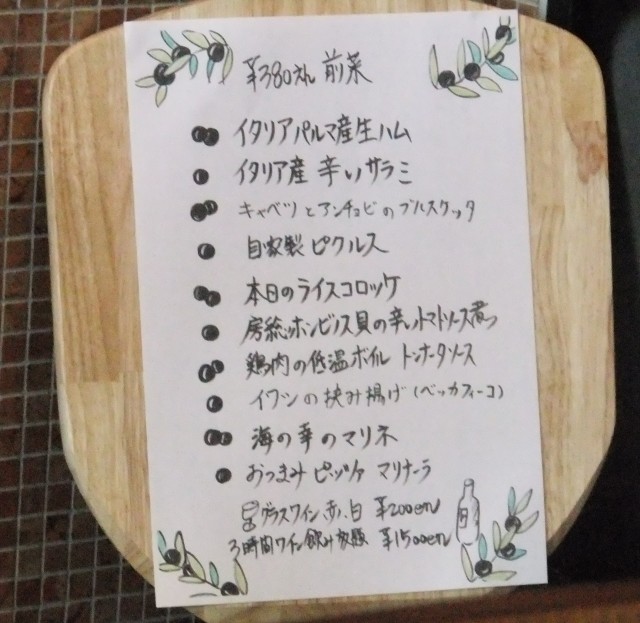 ¥380えん 前菜
イタリアパルマ産生ハム
イタリア産 辛いサラミ
キャベツとアンチョビのブルスケッタ
自家製ピクルス
本日のライスコロッケ
房総ホンビノス貝の辛いトマトソース煮
鶏肉の低温ボイル トンナータソース
イワシの挟み揚げ(ベッカフィーコ)
海の幸のマリネ
おつまみピッツァ マリナーラ
グラスワイン 赤、白 ¥200en
3時間ワイン飲み放題 ¥1500en